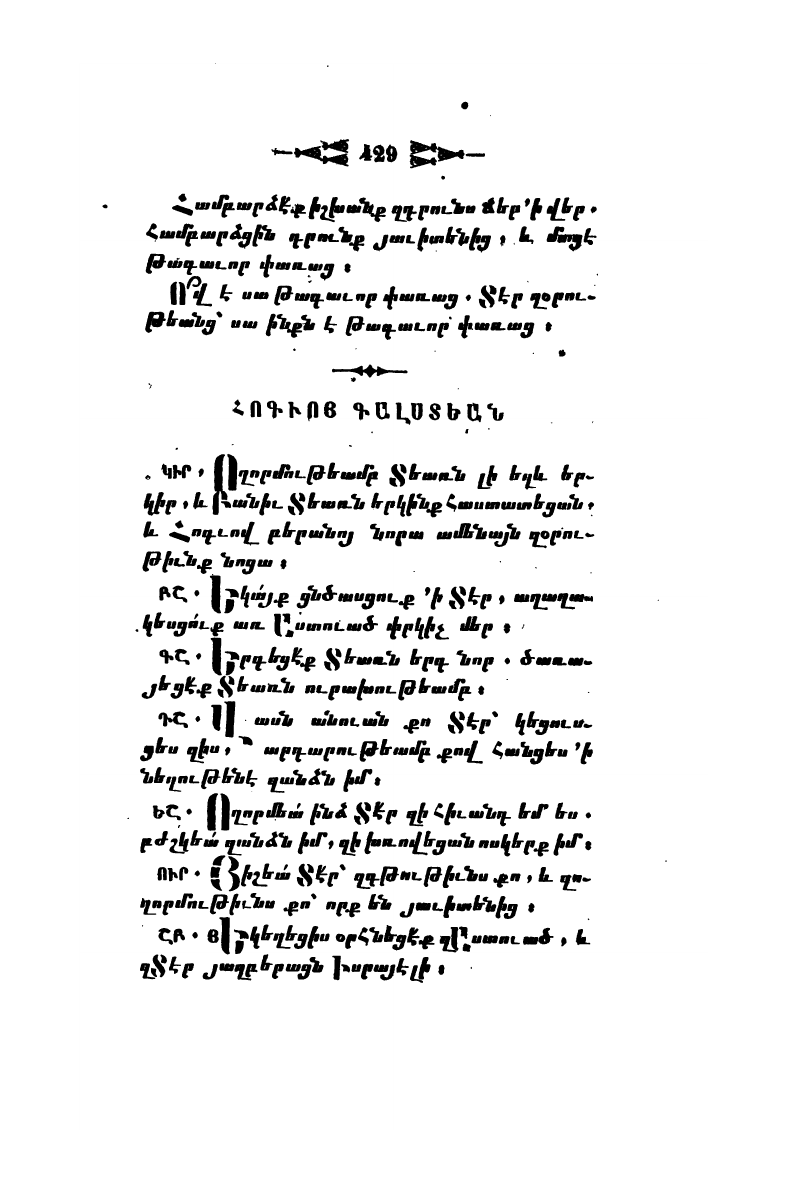 429
Համբարձէ՛ք իշխանք զդրունս ձեր ՚ի վեր.
Համբարձցին դրունք յաւիտենից, և մտցէ
Թագաւոր փառաց ։
Ո՞վ է սա Թագաւոր փառաց. Տէր զօրու-
Թեանց՝ սա ինքն է Թագաւոր փառաց ։
ՀՈԳԻՈՅ ԳԱԼՍՏԵԱՆ
ԿԻՐ, Ողորմութեամբ Տեառն լի եղև եր-
կիր, և Բանիւ Տեառն երկինք Հաստատեցան,
և Հոգւով բերանոյ նորա ամենայն զօրու-
Թիւնք նոցա ։
ԲՇ. Եկա՛յք ցնծասցուք ՚ի Տէր, աղաղա-
կեսցո՛ւք առ Աստուած փրկիչ մեր ։
ԳՇ. Երգեցէ՛ք Տեառն երգ նոր. ծառա-
յեցէ՛ք Տեառն ուրախութեամբ ։
ԴՇ. Վասն անուան քո Տէր՝ կեցուս-
ցես զիս, արդարութեամբ քով Հանցես ՚ի
նեղութենէ զանձն իմ ։
ԵՇ. Ողորմեա՛ ինձ Տէ՛ր զի Հիւանդ եմ ես.
բժշկեա՛ զանձն իմ, զի խռովեցան ոսկերք իմ ։
ՈՒՐ. Յիշեա՛ Տէ՛ր՝ զգթութիւնս քո, և զո-
ղորմութիւնս քո՝ որք են յաւիտենից ։
ՇԲ. Յեկեղեցիս օրհնեցէ՛ք զԱստուած, և
զՏէր յաղբերացն Իսրայէլի ։